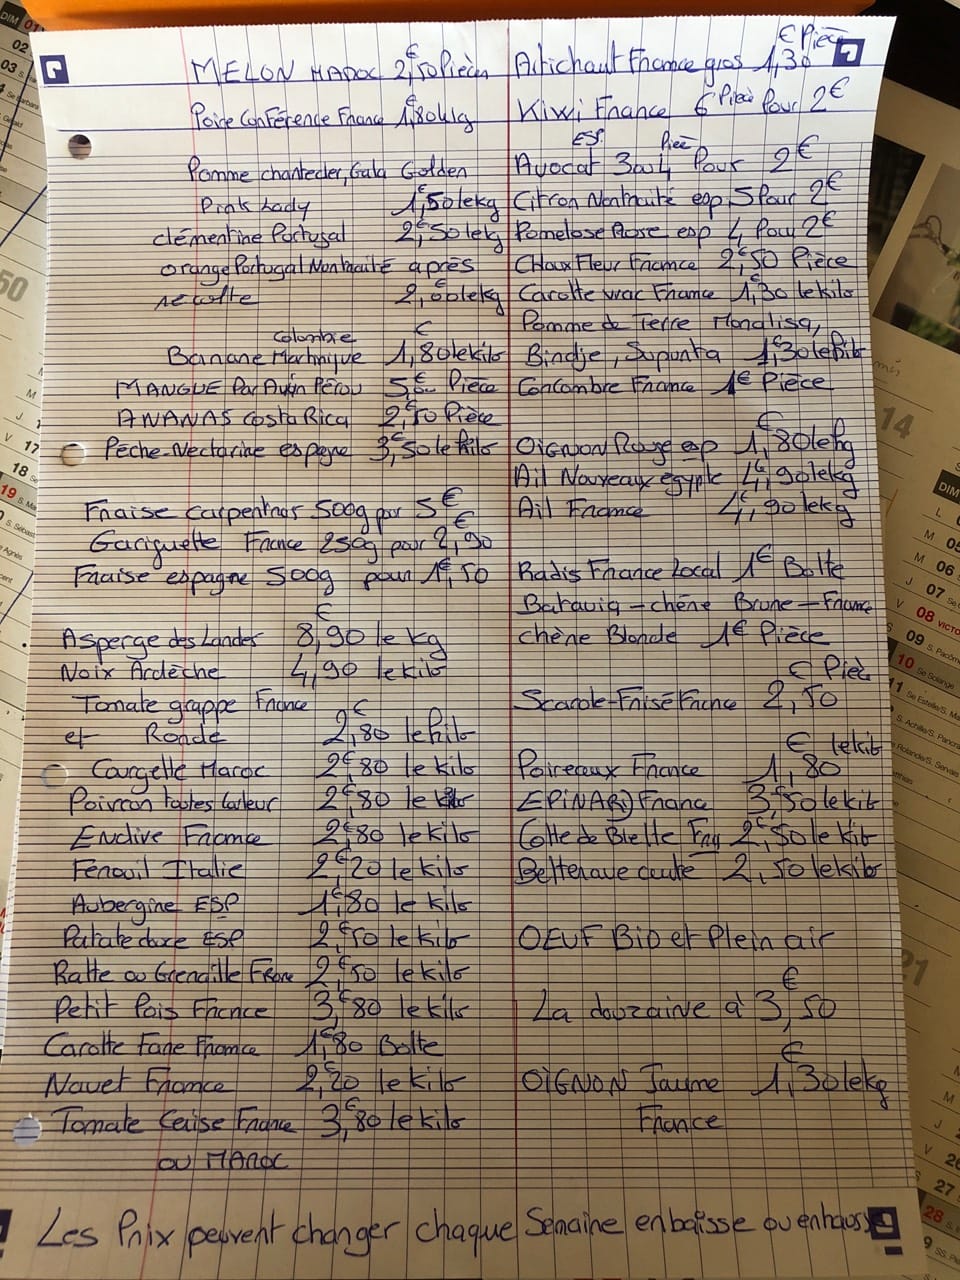 MELON MAROC 2€,50 Pièce
Poire Conférence France 1€,80 kg
Pomme chantecler, Gala Golden
Pink Lady 1€,50 le kg
clémentine Portugal 2€,50 le kg
Orange Portugal Non traité après
récolte 2€,00 le kg
Colombie
Banane Martinique 1€,80 le kilo
MANGUE Par Avion Pérou Pièce
ANANAS Costa Rica 2€,50 Pièce
Pêche-Nectarine espagne 3€,50 le kilo
Fraise Carpentras 500g pour 5€
Gariguette France 250g pour 2€,90
Fraise espagne 500g pour 1€,50
Asperge des Landes 8€,90 le kg
Noix Ardèche 4,90 le kilo
Tomate grappe France
et Ronde 2€,80 le kilo
Courgette Maroc 2€,80 le kilo
Poivron toutes Couleur 2€,80 le kilo
Endive France 2€,80 le kilo
Fenouil Italie 2€,20 le kilo
Aubergine ESP 1€,80 le kilo
Patate douce ESP 2€,50 le kilo
Ratte ou Grenaille France 2€,50 le kilo
Petit Pois France 3€,80 le kilo
Carotte Fane France 1€,80 Botte
Navet France 2€,20 le kilo
Tomate Cerise France 3€,80 le kilo
OU MAROC
Artichaut France gros 1€,30 Pièce
Kiwi France 6 Pièce Pour 2€
Avocat ESP. 3 ou 4 Pièce Pour 2€
Citron Non traité esp 5 Pour 2€
Pomelose Rose esp 4 Pour 2€
Choux Fleur France 2€,50 Pièce
Carotte vrac France 1€,30 le kilo
Pomme de Terre Monalisa,
Bindje, Sapunta 1€,30 le kilo
Concombre France 1€ Pièce
OIGNON Rouge esp 1€,80 le kg
Ail Nouveaux égypte 4€,90 le kg
Ail France 4€,90 le kg
Radis France Local 1€ Botte
Batavia - chêne Brune - France
chêne Blonde 1€ Pièce
Scarole-Frisé France 2€,50 Pièce
Poireaux France 1€,80 le kilo
EPINARD France 3€,50 le kilo
Cotte de Blette 2€,50 le kilo
Betterave cuite 2€,50 le kilo
OEUF Bio et Plein air
La douzaine à 3€,50
OIGNON Jaune 1€,30 le kg
France
Les Prix peuvent changer chaque Semaine en baisse ou en hausse